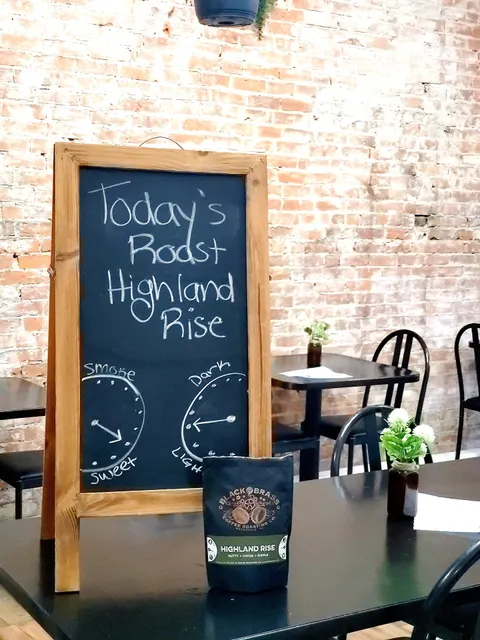 Today's
Roast
Highland
Rise
Smoke
Dark
Sweet
LIGH
BLACK & BRASS
COFFEE ROASTING CO.
HIGHLAND RISE
NUTTY • COCOA • SUPPLE